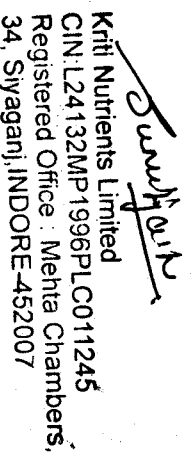 Kriti Nutrients Limited
CIN:L24132MP1996PLC011245
Registered Office : Mehta Chambers,
34, Siyaganj,INDORE-452007